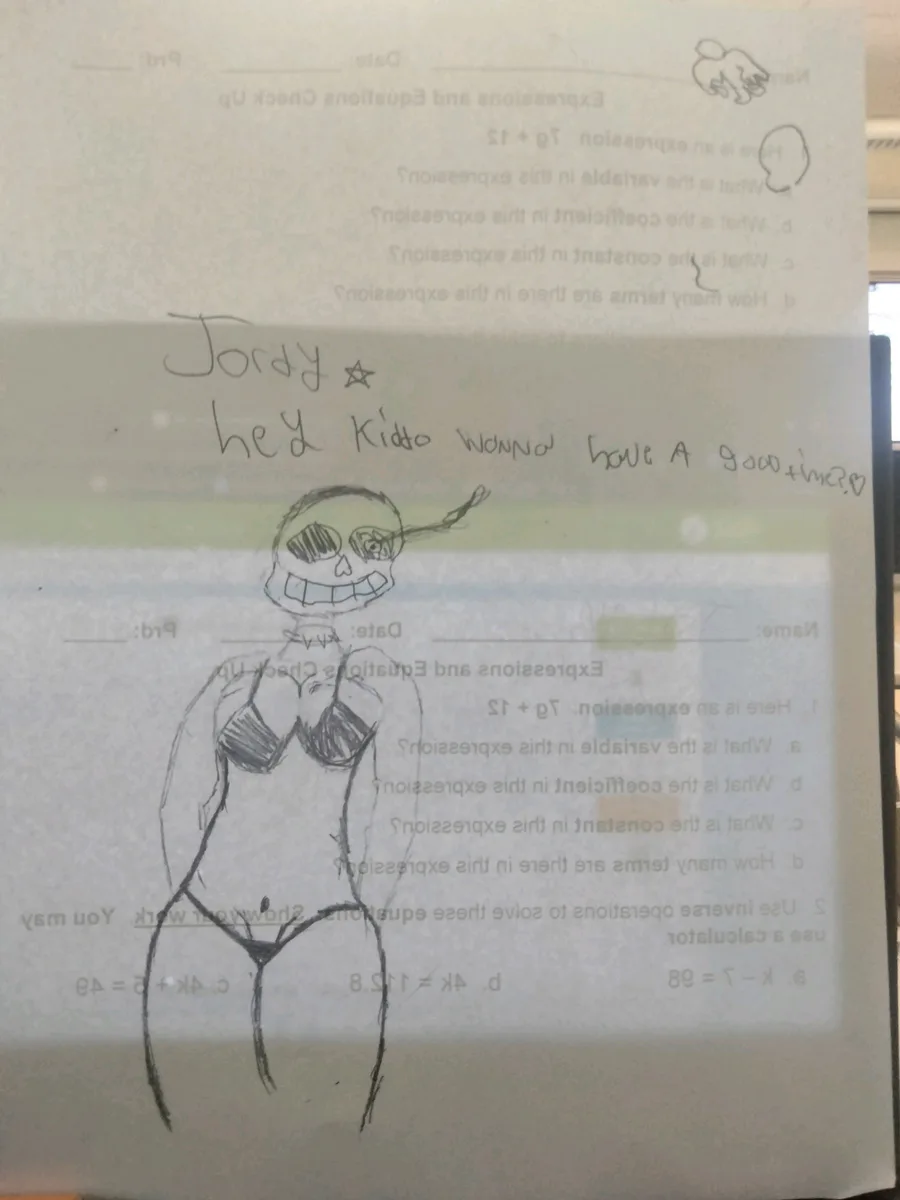 Name Date Prd:
Expressions and Equations Check Up
Here is an expression 7g + 12
What is the variable in this expression?
b. What is the coefficient in this expression?
c. What is the constant in this expression?
d How many terms are there in this expression?
Jordy
hey Kiddo wanna have A good time?
Name: Date: Prd:
Expressions and Equations Check Up
1. Here is an expression. 7g + 12
a. What is the variable in this expression?
b What is the coefficient in this expression?
c. What is the constant in this expression?
d How many terms are there in this expression?
2. Use inverse operations to solve these equations. Show your work. You may
use a calculator
a k – 7 = 98 b. 4k = 112.8 c. 4k + 5 = 49